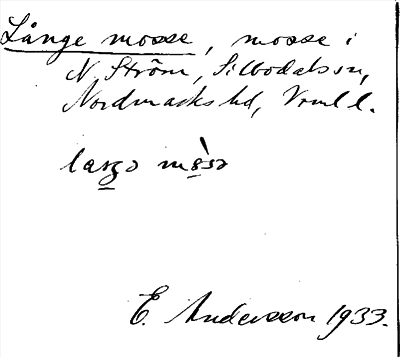 Långe mosse, mosse i
N Ström, Silbodals sn,
Nordmarks hd, Vrml l.
E. Andersson 1933.